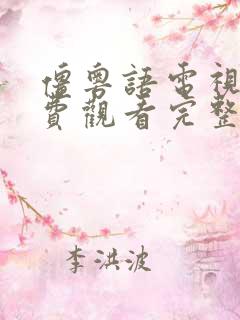 僵粵語電視
費觀看完整
李洪波